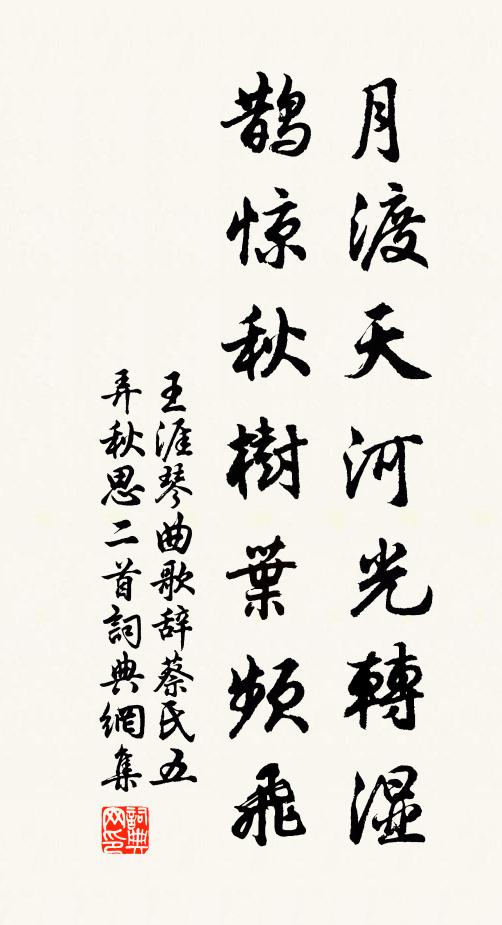 月渡天河光轉湿
鵲惊秋樹葉頻飛
王涯琴曲歌辞蔡氏五
弄秋思二首詞典網集
詞典网印